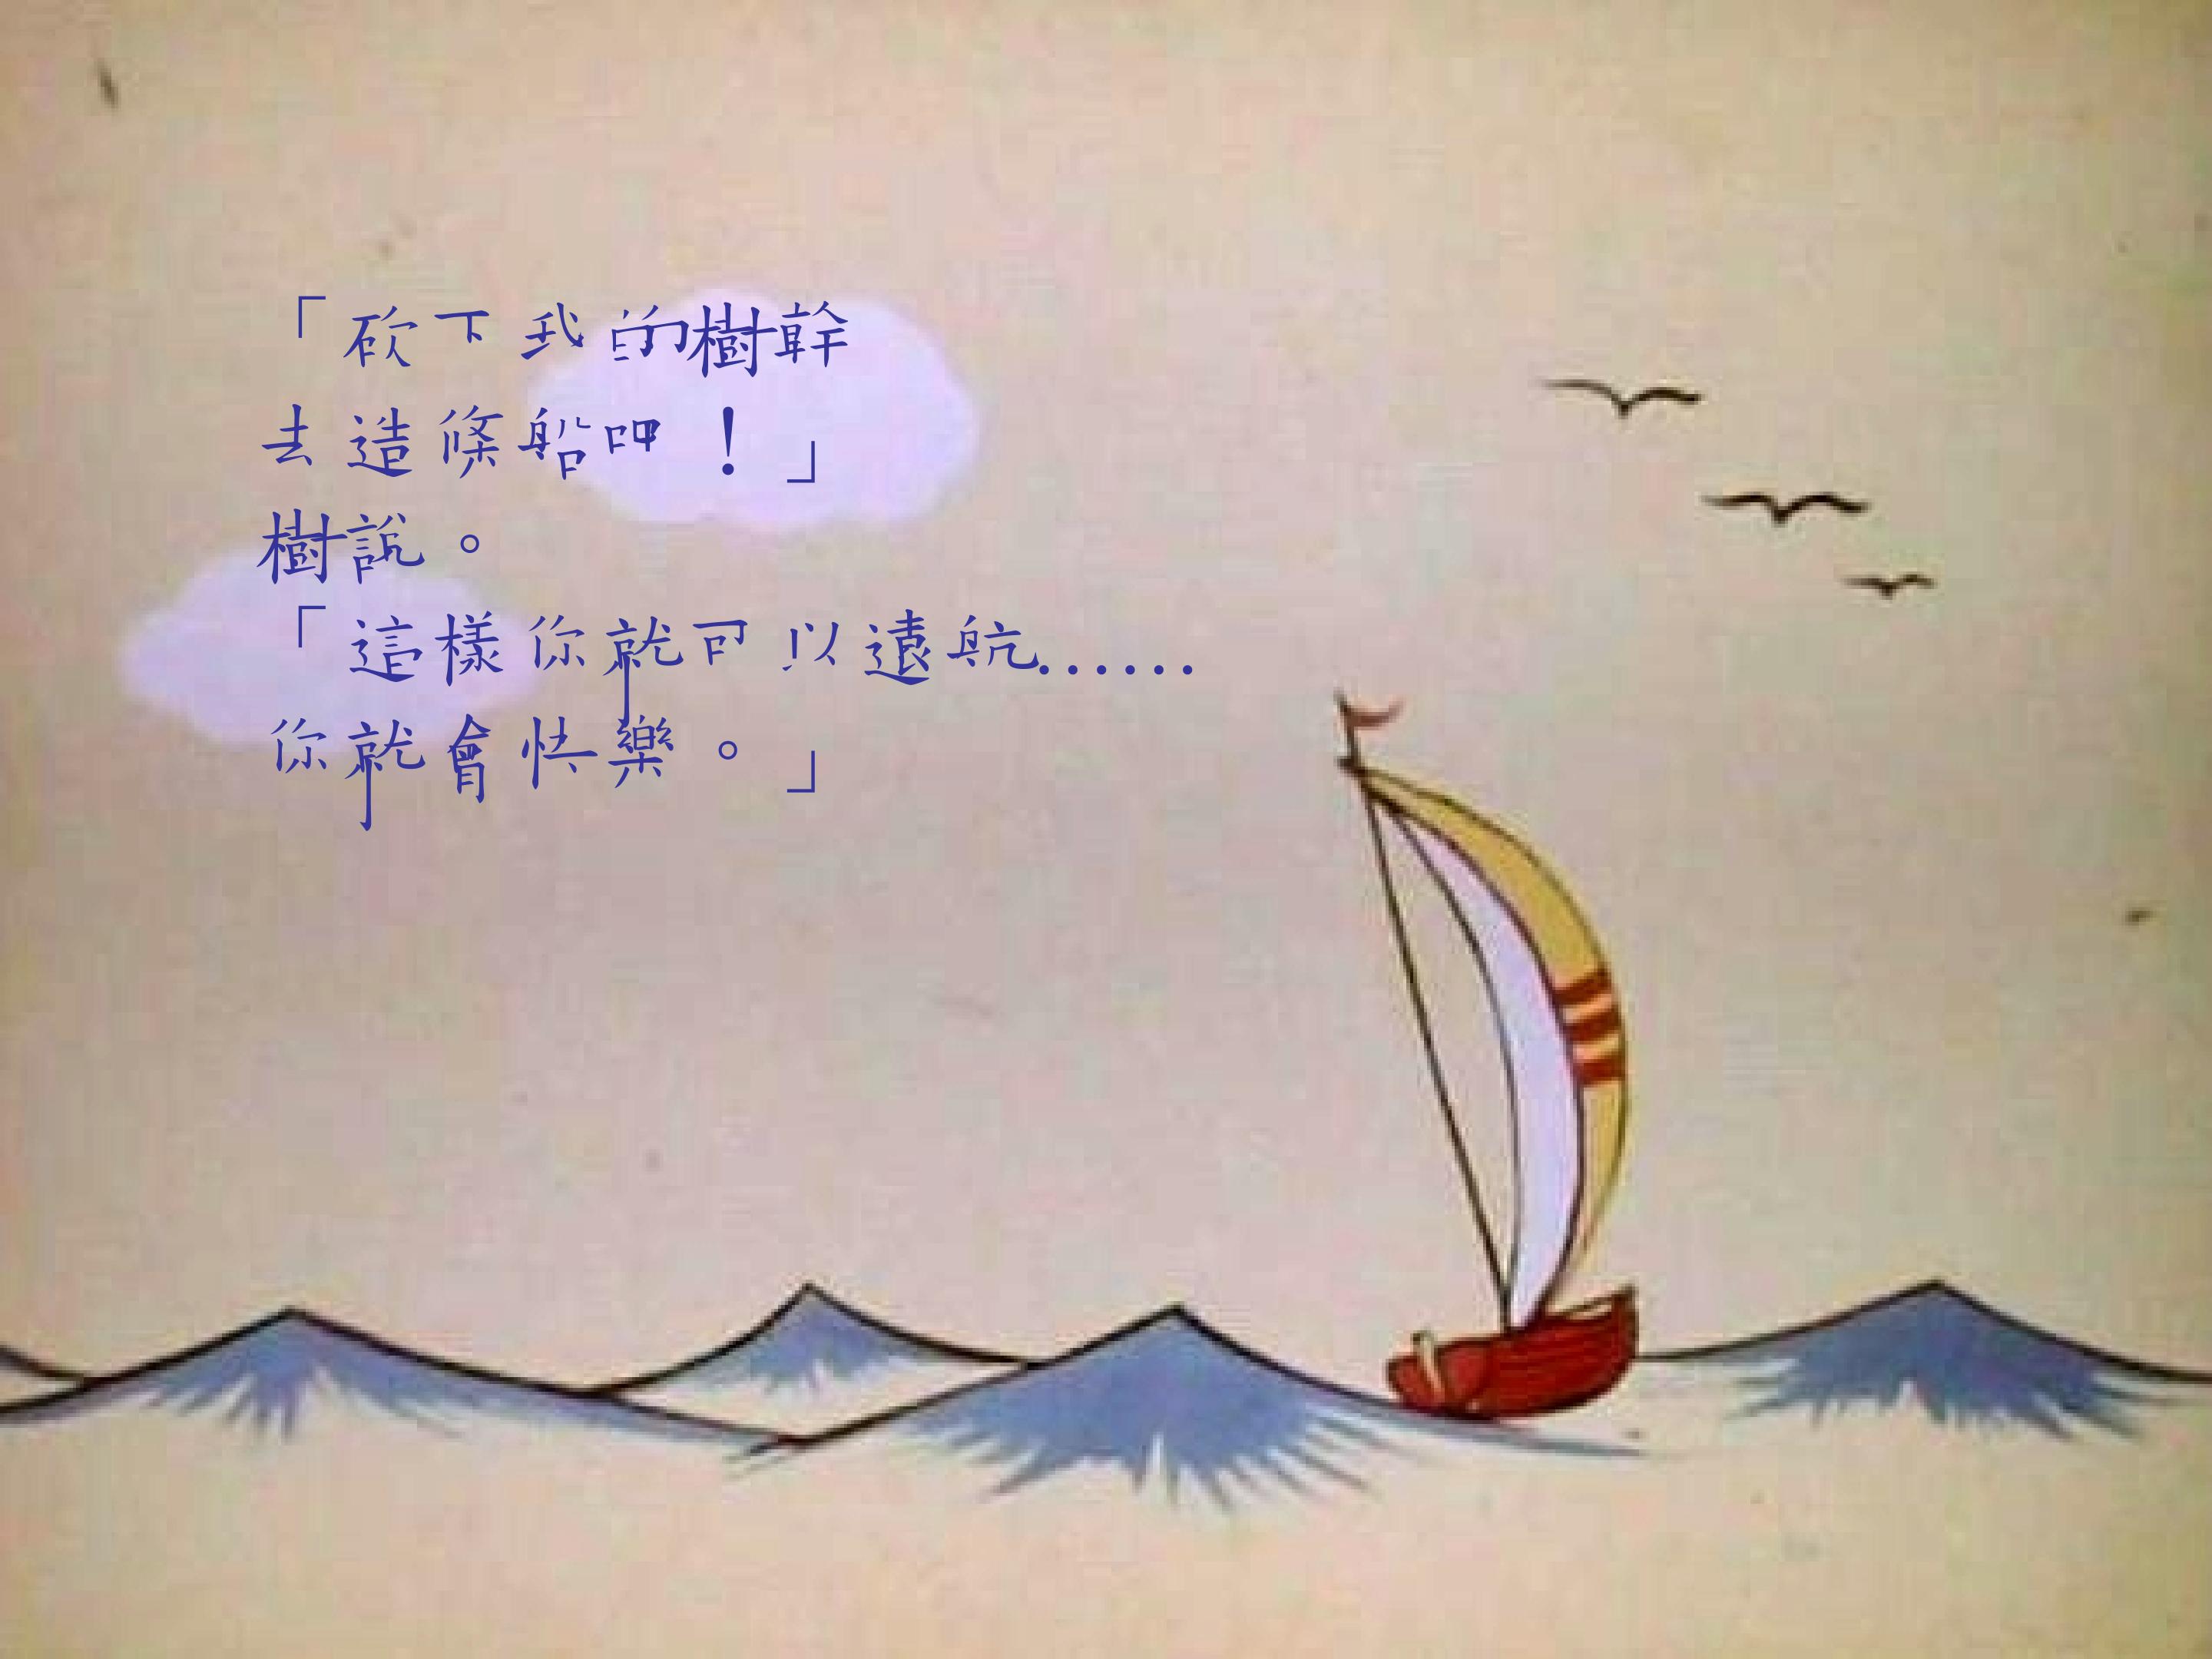 「砍下我的樹幹
去造條船吧！」
樹說。
「這樣你就可以遠航......
你就會快樂。」